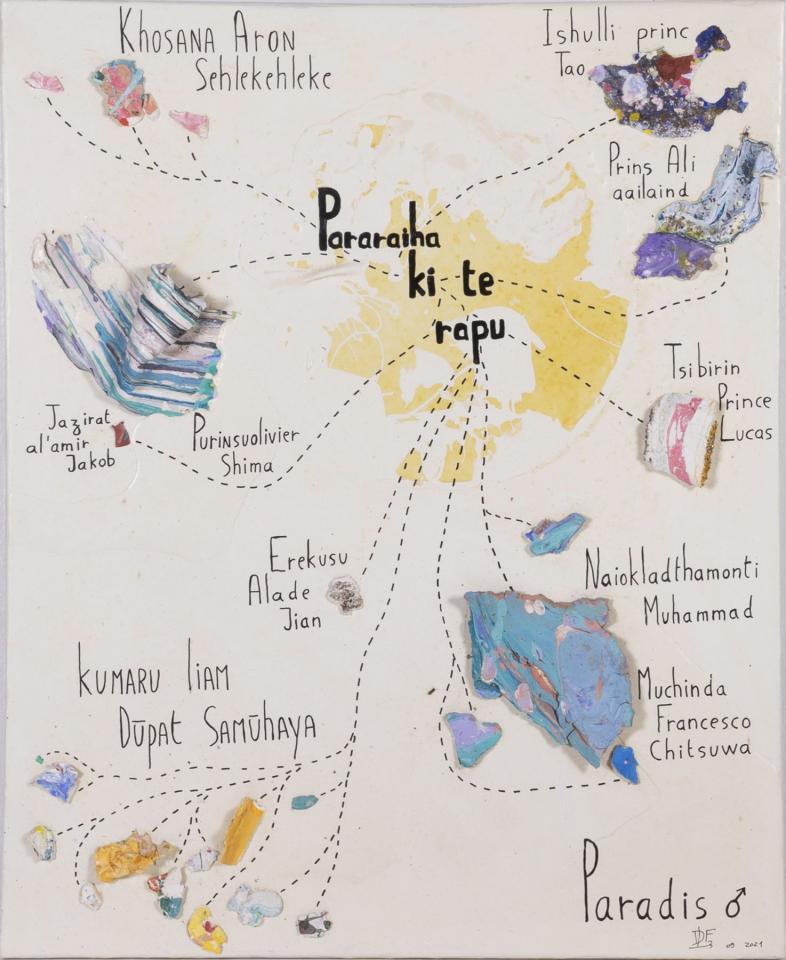 Khosana Aron
Sehlekehleke
Ishulli princ
Tao
Prins Ali
aailaind
Pararaiha
ki te
rapu
Tsibirin
Prince
Lucas
Jazirat
al'amir
Jakob
Purinsuolivier
Shima
Erekusu
Alade
Jian
Naiokladthamonti
Muhammad
Kumaru liam
Dūpat Samūhaya
Muchinda
Francesco
Chitsuwa
Paradis ♂
09 2021